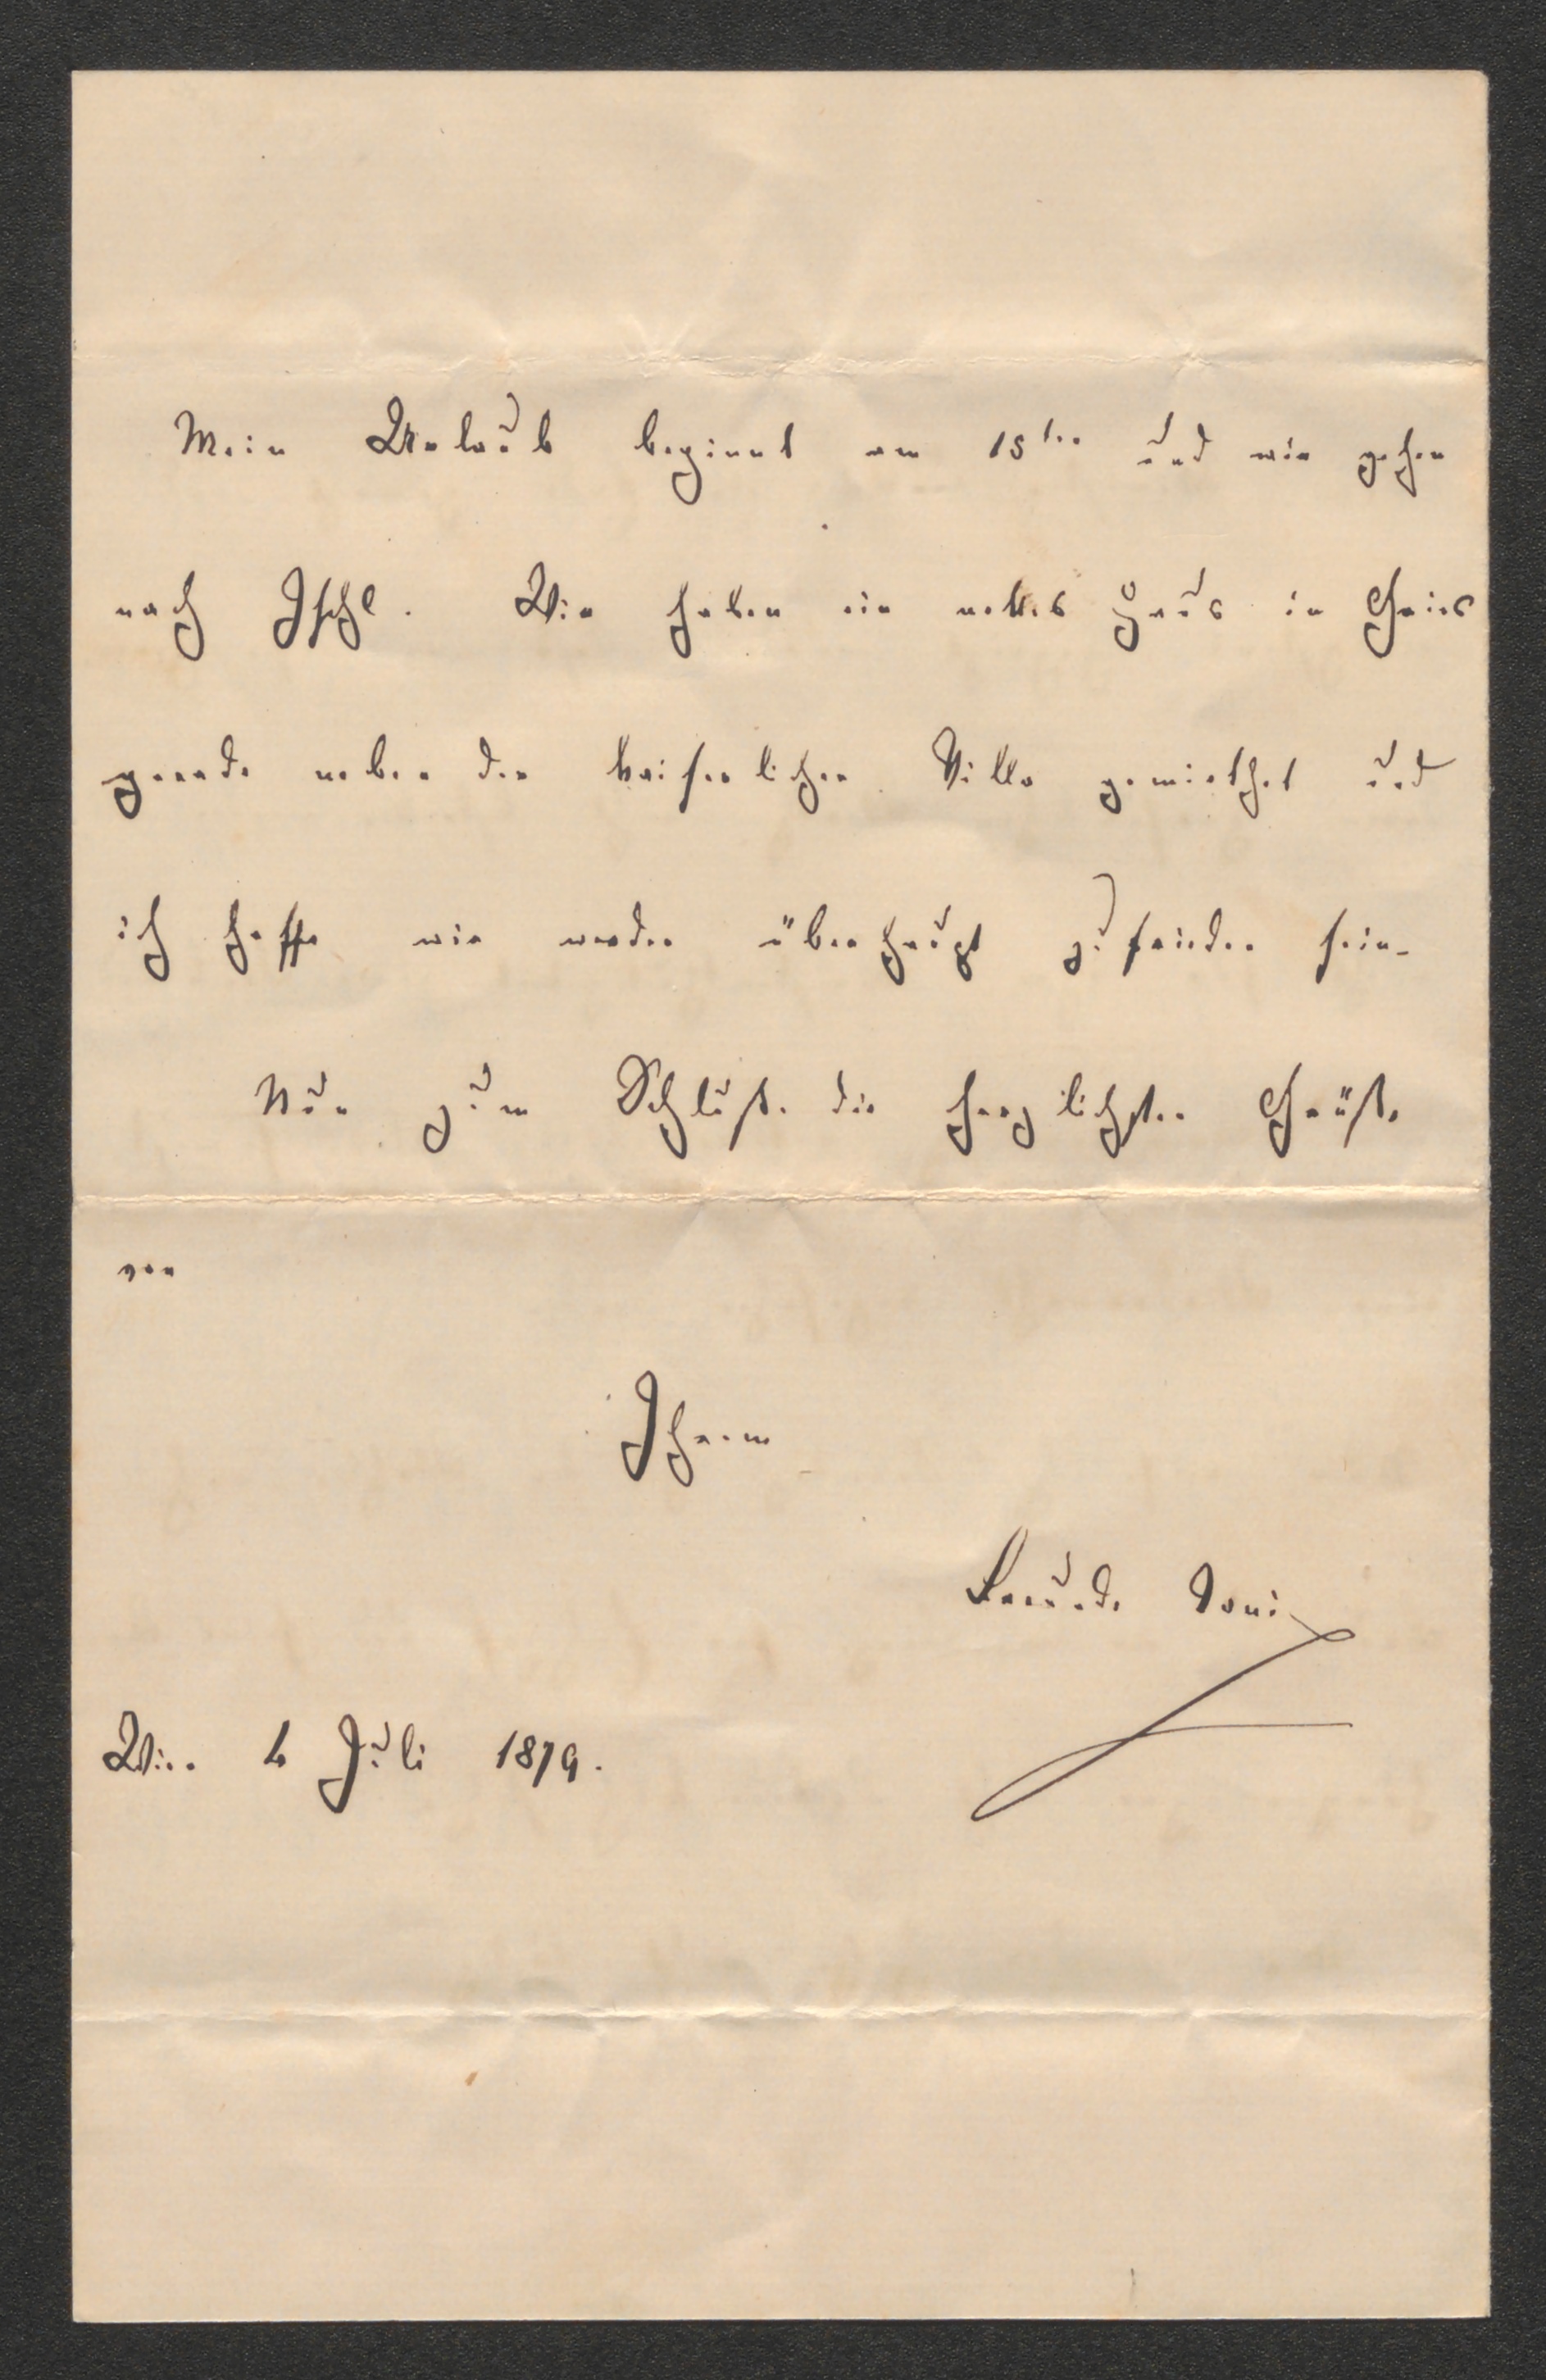 Mein Urlaub beginnt am 15ten und wir gehen
nach Ischl. Wir haben ein nettes Haus in Gries
gerade neben der kaiserlichen Villa gemiethet und
ich hoffe wir werden überhaupt zufrieden sein.
Nun zum Schluße die herzlichsten Grüße
von
Ihrem
Freunde Toni
Wien Juli 1879.